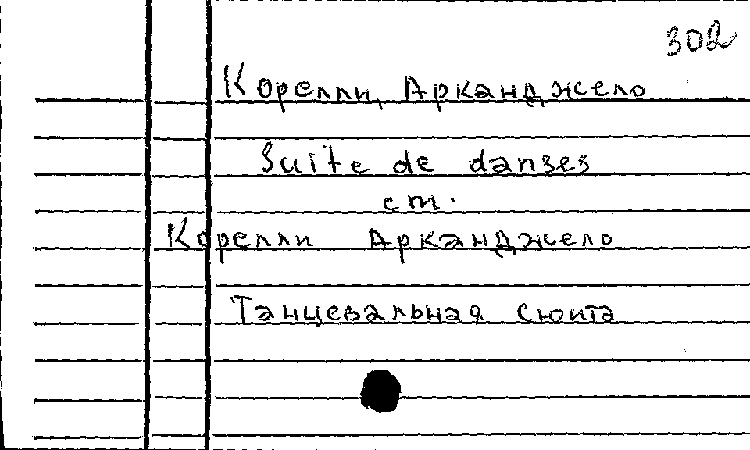 302
Корелли, Арканджело
Suite de danses
см.
Корелли Арканджело
Танцевальная сюита